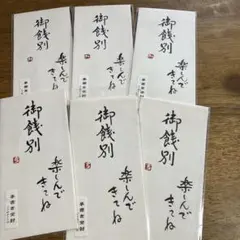 御餞別
楽しんで
きてね
御餞別
楽しんで
きてね
御餞別
楽しんで
きてね
御餞別
楽しんで
きてね
御餞別
楽しんで
きてね
御餞別
楽しんで
きてね